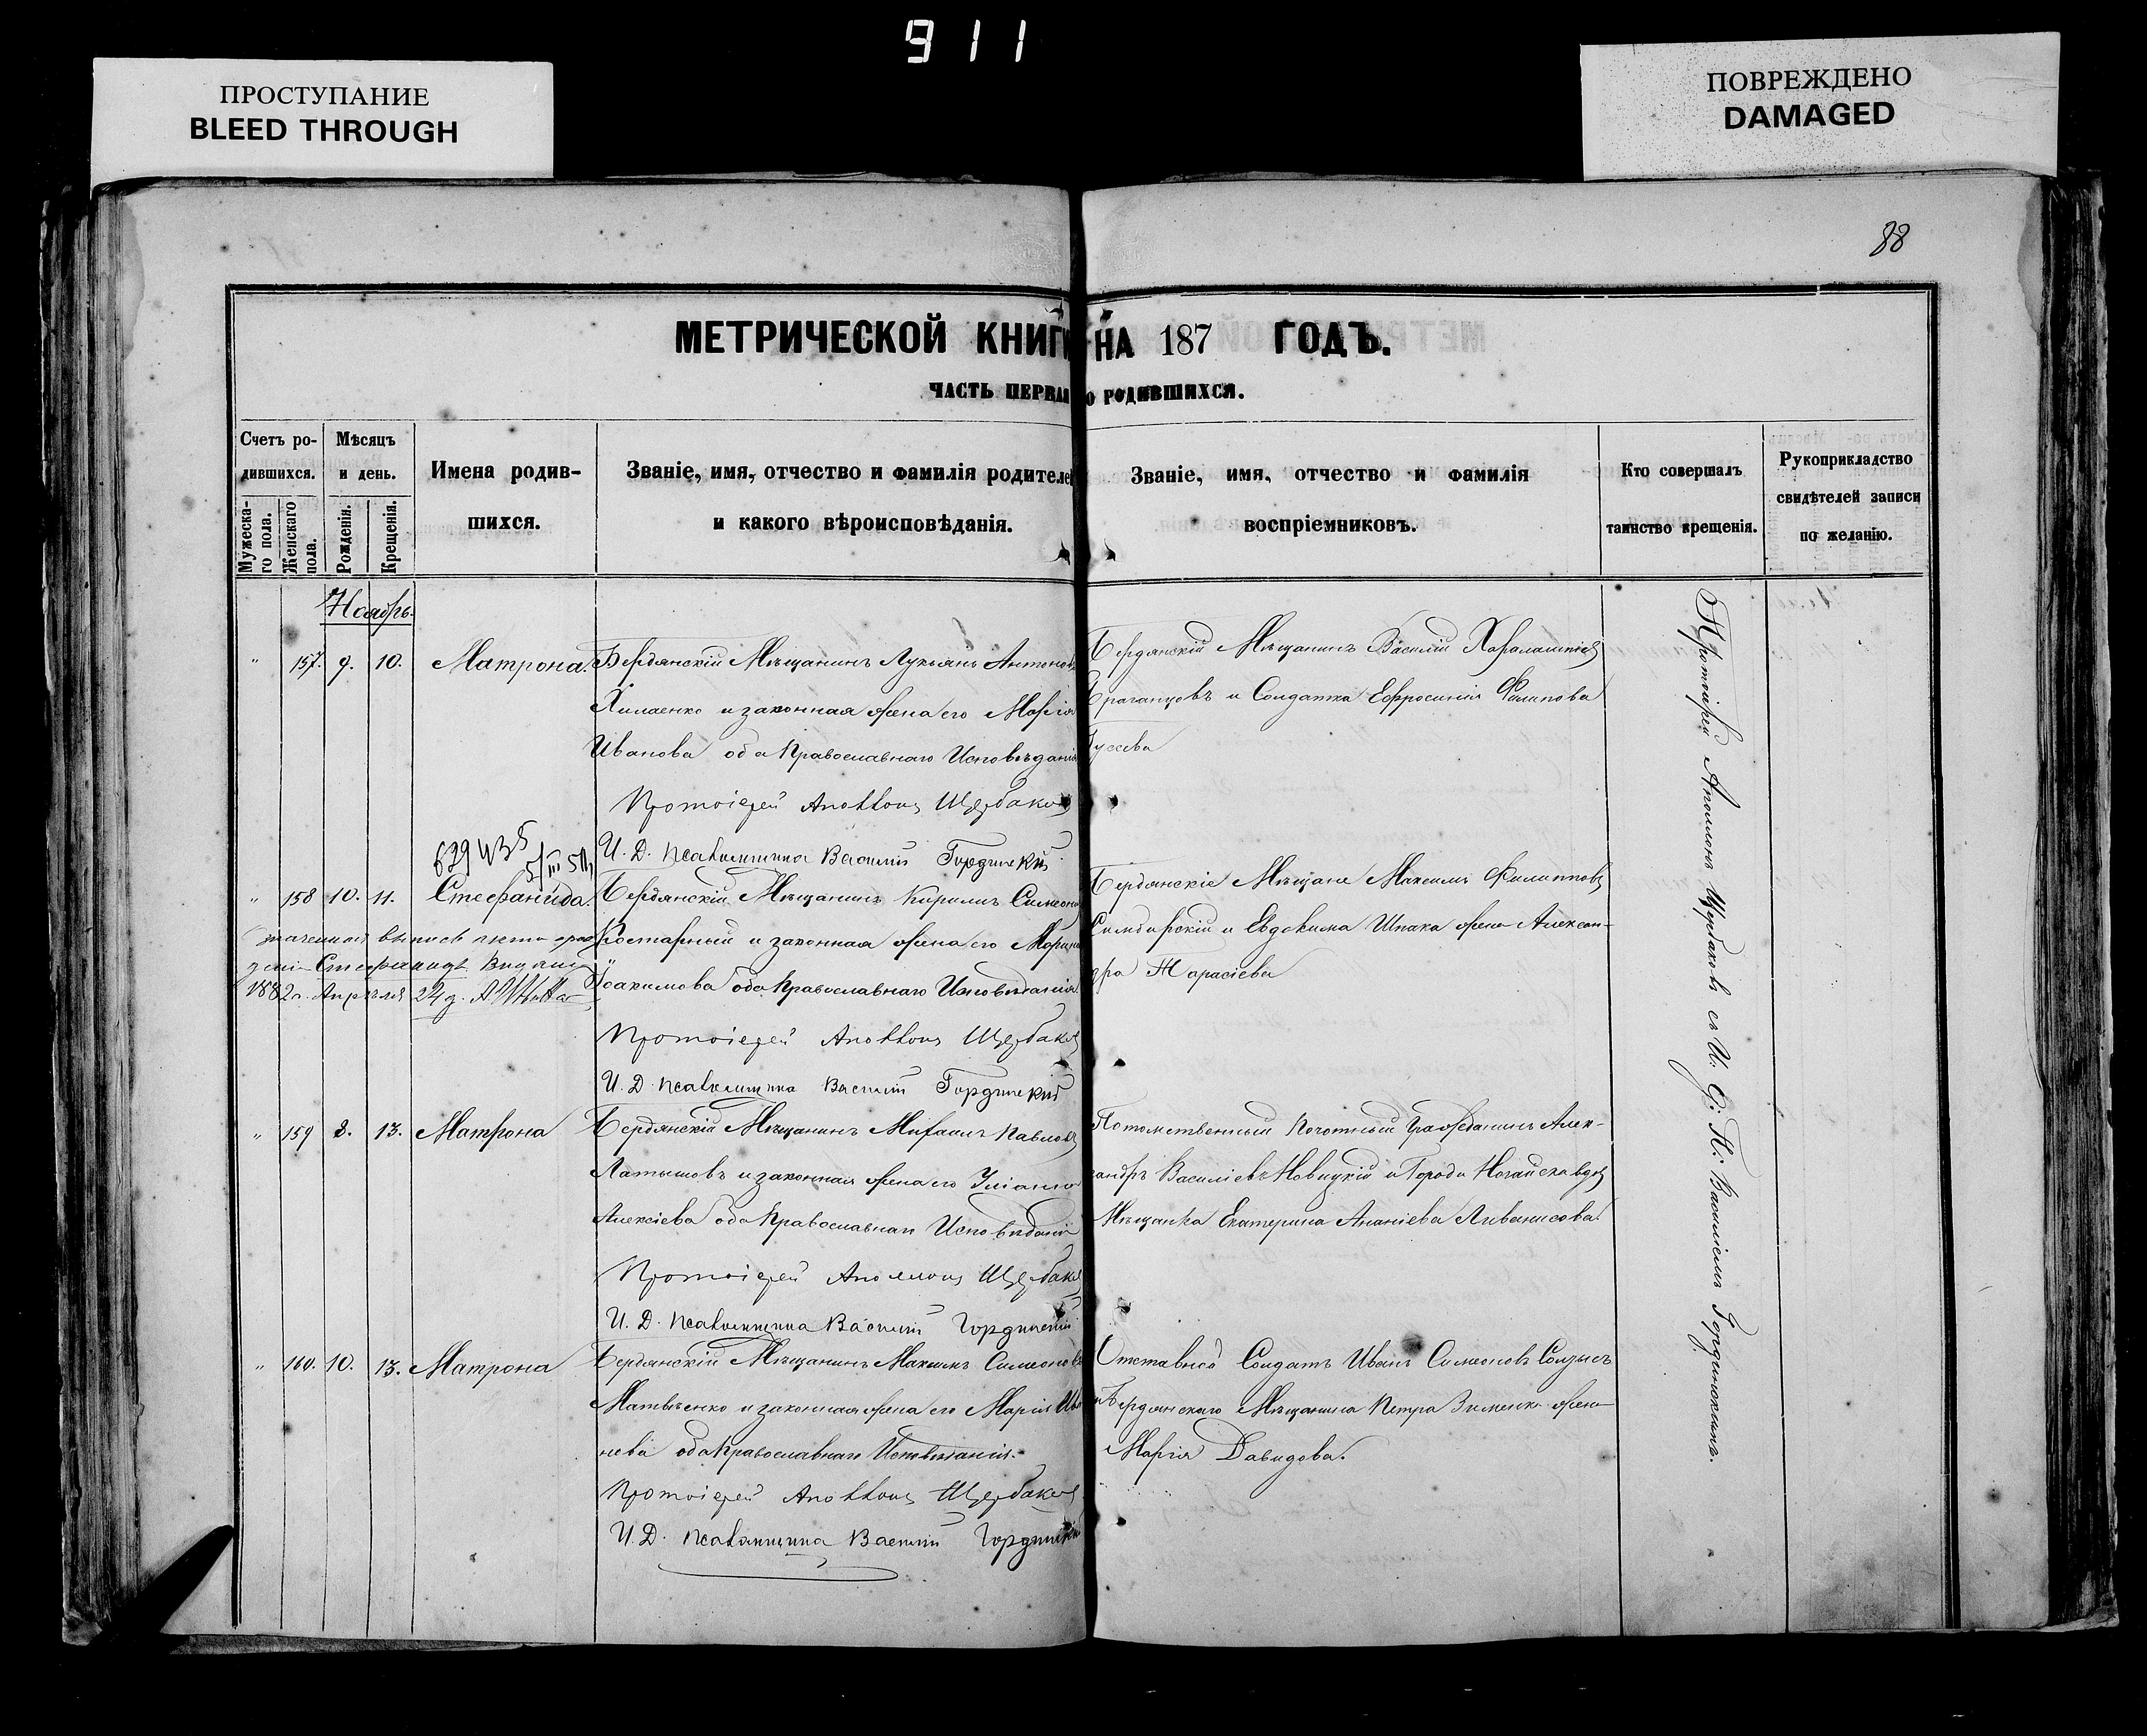 911
ПРОСТУПАНИЕ
BLEED THROUGH
ПОВРЕЖДЕНО
DAMAGED
88
МЕТРИЧЕСКОЙ КНИГИ НА 187 ГОДЪ.
ЧАСТЬ ПЕРВАЯ О РОДИВШИХСЯ.
Счетъ ро-
дившихся.
Мужеска-
го пола.
Женскаго
пола.
Мѣсяцъ
и день.
Рожденія.
Крещенія.
Имена родив-
шихся.
Званіе, имя, отчество и фамилія родителей
и какого вѣроисповѣданія.
Званіе, имя, отчество и фамилія
воспріемниковъ.
Кто совершалъ
таинство крещенія.
Рукоприкладство
свидѣтелей записи
по желанію.
Ноябрь.
" 157. 9. 10. Матрона. Бердянскій Мѣщанинъ Лукьянъ Антоновъ
Хилаенко и законная жена его Марія
Иванова оба Православнаго Исповѣданія
Протоіерей Аполлонъ Щербаковъ
И. Д. Псаломщика Василій Гординскій
Бердянскій Мѣщанинъ Василій
и Солдатка Ефросинія Филипова
Гусева
" 158 10. 11. Стефанида. Бердянскій Мѣщанинъ Кирилъ Симеоновъ
и законная жена его
Іоакимова оба Православнаго Исповѣданія
Протоіерей Аполлонъ Щербаковъ
И. Д. Псаломщика Василій Гординскій
Стефанидѣ
1882 г. Апрѣля 24 д.
Бердянскіе Мѣщане Максимъ Филипповъ
Симбирскій и Евдокима Шпака жена Алексан-
дра Тарасіева
" 159 8. 13. Матрона Бердянскій Мѣщанинъ Михаилъ Павловъ
Латышовъ и законная жена его Уліанія
Алексіева оба Православнаго Исповѣданія
Протоіерей Аполлонъ Щербаковъ
И. Д. Псаломщика Василій Гординскій
Потомственный Почотный Гражданинъ Алек-
сандръ Василіевъ Новицкій и Города Ногайска вдова
Мѣщанка Екатерина Ананіева Ливанисова.
" 160. 10. 13. Матрона Бердянскій Мѣщанинъ Максимъ Симеоновъ
Матвѣенко и законная жена его Марія
оба Православнаго Исповѣданія.
Протоіерей Аполлонъ Щербаковъ
И. Д. Псаломщика Василій Гординскій
Отставной Солдатъ Иванъ Симеоновъ
и Бердянскаго Мѣщанина Петра Зименко жена
Марія Давидова.
Протоіерей Аполлонъ Щербаковъ съ И. Д. П. Василіемъ Гординскимъ.